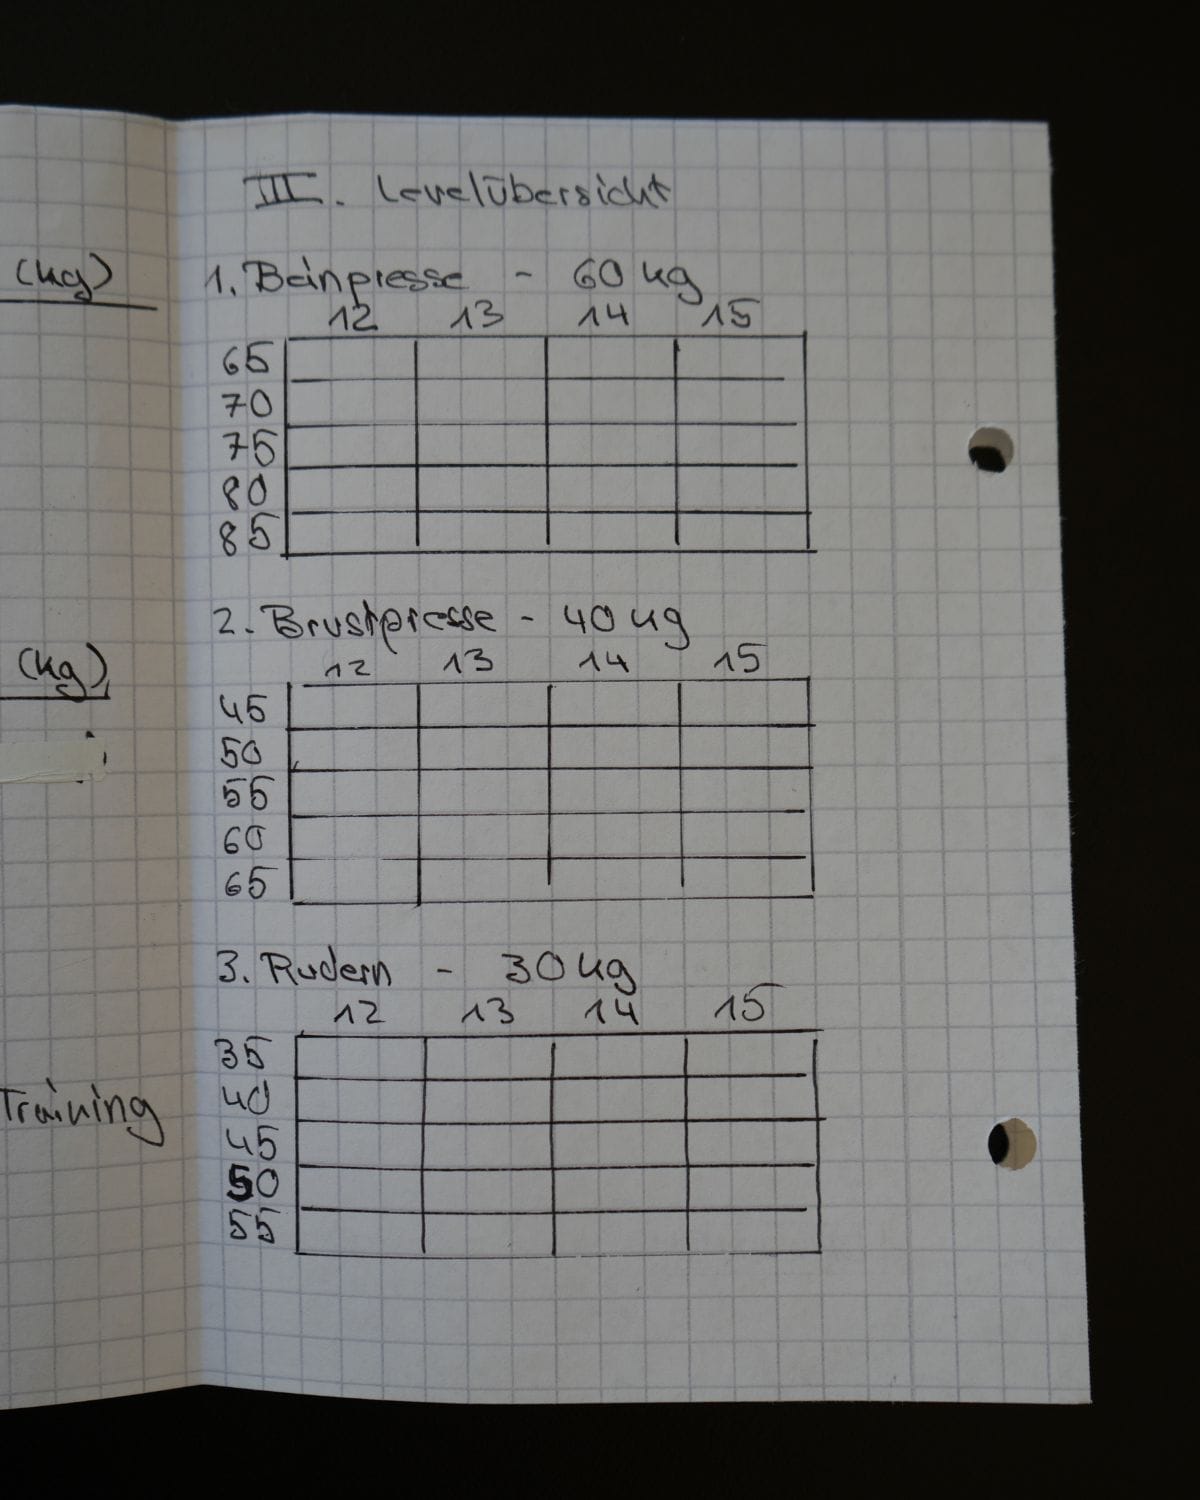 III. Levelübersicht
(kg)
1. Beinpresse - 60 kg
12 13 14 15
65
70
75
80
85
2. Brustpresse - 40 kg
(kg)
12 13 14 15
45
50
55
60
65
3. Rudern - 30 kg
12 13 14 15
35
40
Training
45
50
55